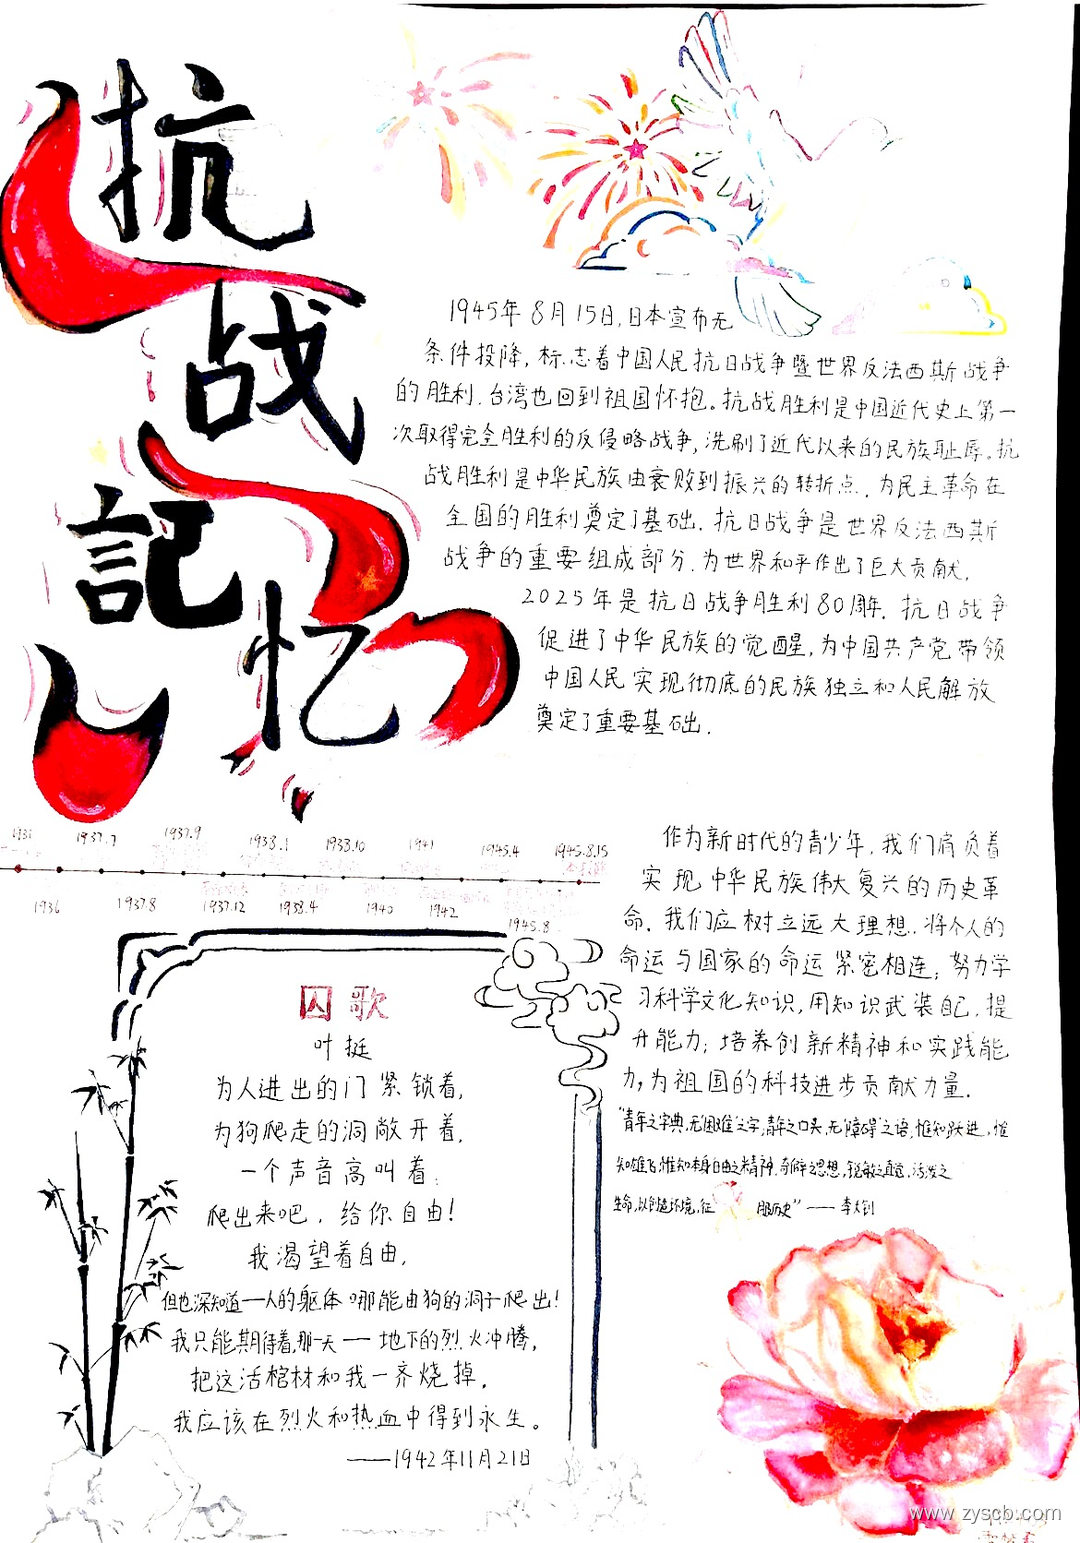 抗
战
記
忆
1945年8月15日,日本宣布无
条件投降,标志着中国人民抗日战争暨世界反法西斯战争
的胜利.台湾也回到祖国怀抱。抗战胜利是中国近代史上第一
次取得完全胜利的反侵略战争,洗刷了近代以来的民族耻辱.抗
战胜利是中华民族由衰败到振兴的转折点.为民主革命在
全国的胜利奠定了基础.抗日战争是世界反法西斯
战争的重要组成部分.为世界和平作出了巨大贡献.
2025年是抗日战争胜利80周年.抗日战争
促进了中华民族的觉醒,为中国共产党带领
中国人民实现彻底的民族独立和人民解放
奠定了重要基础.
1931 1937.7 1937.9 1938.1 1938.10 1941 1945.4 1945.8.15
1936 1937.8 1937.12 1938.4 1940 1942 1945.8
囚歌
叶挺
为人进出的门紧锁着,
为狗爬走的洞敞开着,
一个声音高叫着:
爬出来吧,给你自由!
我渴望着自由,
但也深知道一一人的躯体哪能由狗的洞子爬出!
我只能期待着,那一天——地下的烈火冲腾,
把这活棺材和我一齐烧掉,
我应该在烈火和热血中得到永生。
——1942年11月21日
作为新时代的青少年,我们肩负着
实现中华民族伟大复兴的历史革
命.我们应树立远大理想.将个人的
命运与国家的命运紧密相连,努力学
习科学文化知识,用知识武装自己,提
升能力;培养创新精神和实践能
力,为祖国的科技进步贡献力量.
"青年之字典,无困难之字,青年之口头,无障碍之语,惟知跃进,惟
知雄飞,惟知本身自由之精神,奇僻之思想,锐敏之直觉,活泼之
生命,以创造环境,征 服历史"——李大钊
www.zyscb.com